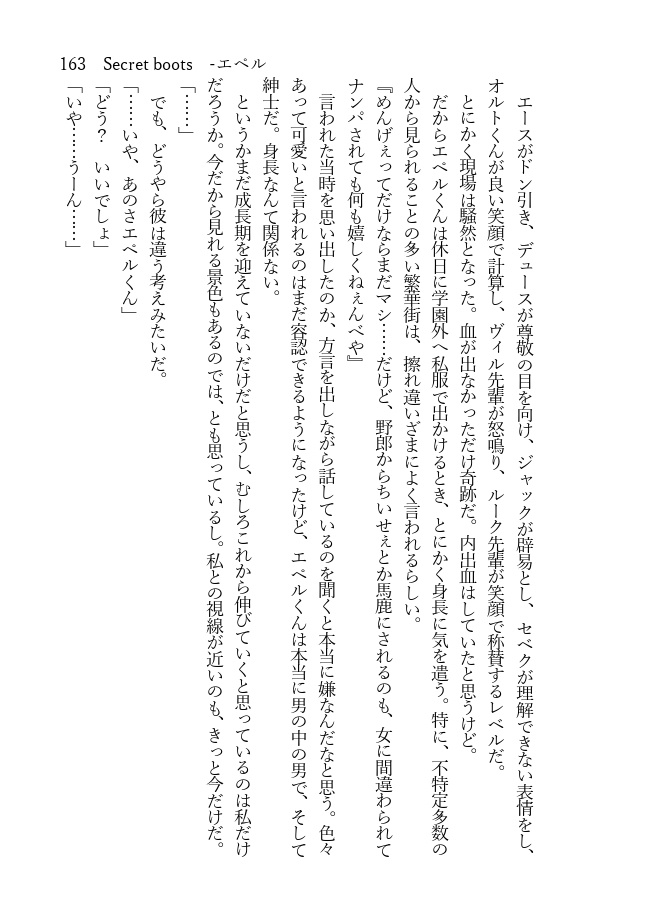 163 Secret boots -エペル
エースがドン引き、デュースが尊敬の目を向け、ジャックが辟易とし、セベクが理解できない表情をし、
オルトくんが良い笑顔で計算し、ヴィル先輩が怒鳴り、ルーク先輩が笑顔で称賛するレベルだ。
とにかく現場は騒然となった。血が出なかっただけ奇跡だ。内出血はしていたと思うけど。
だからエペルくんは休日に学園外へ私服で出かけるとき、とにかく身長に気を遣う。特に、不特定多数の
人から見られることの多い繁華街は、擦れ違いざまによく言われるらしい。
『めんげぇってだけならまだマシ……だけど、野郎からちいせぇとか馬鹿にされるのも、女に間違わられて
ナンパされても何も嬉しくねぇんべや』
言われた当時を思い出したのか、方言を出しながら話しているのを聞くと本当に嫌なんだなと思う。色々
あって可愛いと言われるのはまだ容認できるようになったけど、エペルくんは本当に男の中の男で、そして
紳士だ。身長なんて関係ない。
というかまだ成長期を迎えていないだけだと思うし、むしろこれから伸びていくと思っているのは私だけ
だろうか。今だから見れる景色もあるのでは、とも思っているし。私との視線が近いのも、きっと今だけだ。
「……」
でも、どうやら彼は違う考えみたいだ。
「……いや、あのさエペルくん」
「どう？ いいでしょ」
「いや……うーん……」